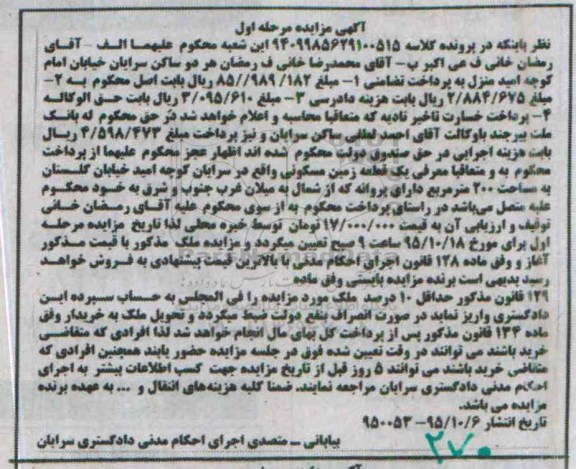 آگهی مزایده مرحله اول
نظر باینکه در پرونده کلاسه ۹۴۰۹۹۸۵۶۲۹۱۰۰۵۱۵ این شعبه محکوم علیهما الف - آقای
رمضان خانی ف می اکبر ب- آقای محمدرضا خانی ف رمضان هر دو ساکن سرایان خیابان امام
کوچه امید منزل به پرداخت تضامنی ۱- مبلغ ۸۵//۹۸۹/۱۸۲ ریال بابت اصل محکوم به ۲-
مبلغ ۲/۸۸۴/۶۷۵ ریال بابت هزینه دادرسی ۳- مبلغ ۳/۰۹۵/۶۱۰ ریال بابت حق الوکاله
۴- پرداخت خسارت تاخیر تادیه که متعاقبا محاسبه و اعلام خواهد شد در حق محکوم له بانک
ملت بیرجند باوکالت آقای احمد لطفی ساکن سرایان و نیز پرداخت مبلغ ۴/۵۹۸/۴۷۳ ریال
بابت هزینه اجرایی در حق صندوق دولت محکوم شده اند اظهار عجز محکوم علیهما از پرداخت
محکوم به و متعاقبا معرفی یک قطعه زمین مسکونی واقع در سرایان کوچه امید خیابان گلستان
به مساحت ۲۰۰ مترمربع دارای پروانه که از شمال به میلان غرب جنوب و شرق به خود محکوم
علیه متصل می‌باشد در راستای پرداخت محکوم به از سوی محکوم علیه آقای رمضان خانی
توقیف و ارزیابی آن به قیمت ۱۷/۰۰۰/۰۰۰ تومان توسط خبره محلی لذا تاریخ مزایده مرحله
اول برای مورخ ۹۵/۱۰/۱۸ ساعت ۹ صبح تعیین میگردد و مزایده ملک مذکور با قیمت مذکور
آغاز و وفق ماده ۱۲۸ قانون اجرای احکام مدنی با بالاترین قیمت پیشنهادی به فروش خواهد
رسید بدیهی است برنده مزایده بایستی وفق ماده
۱۲۹ قانون مذکور حداقل ۱۰ درصد ملک مورد مزایده را فی المجلس به حساب سپرده این
دادگستری واریز نماید در صورت انصراف بنفع دولت ضبط میگردد و تحویل ملک به خریدار وفق
ماده ۱۳۴ قانون مذکور پس از پرداخت کل بهای مال انجام خواهد شد لذا افرادی که متقاضی
خرید باشند می توانند در وقت تعیین شده فوق در جلسه مزایده حضور یابند همچنین افرادی که
متقاضی خرید باشند می توانند ۵ روز قبل از تاریخ مزایده جهت کسب اطلاعات پیشتر به اجرای
احکام مدنی دادگستری سرایان مراجعه نمایند. ضمنا کلیه هزینه‌های انتقال و ... به عهده برنده
مزایده می باشد.
تاریخ انتشار ۹۵/۱۰/۶- ۹۵۰۰۵۳
بیابانی - متصدی اجرای احکام مدنی دادگستری سرایان
۲۷۰